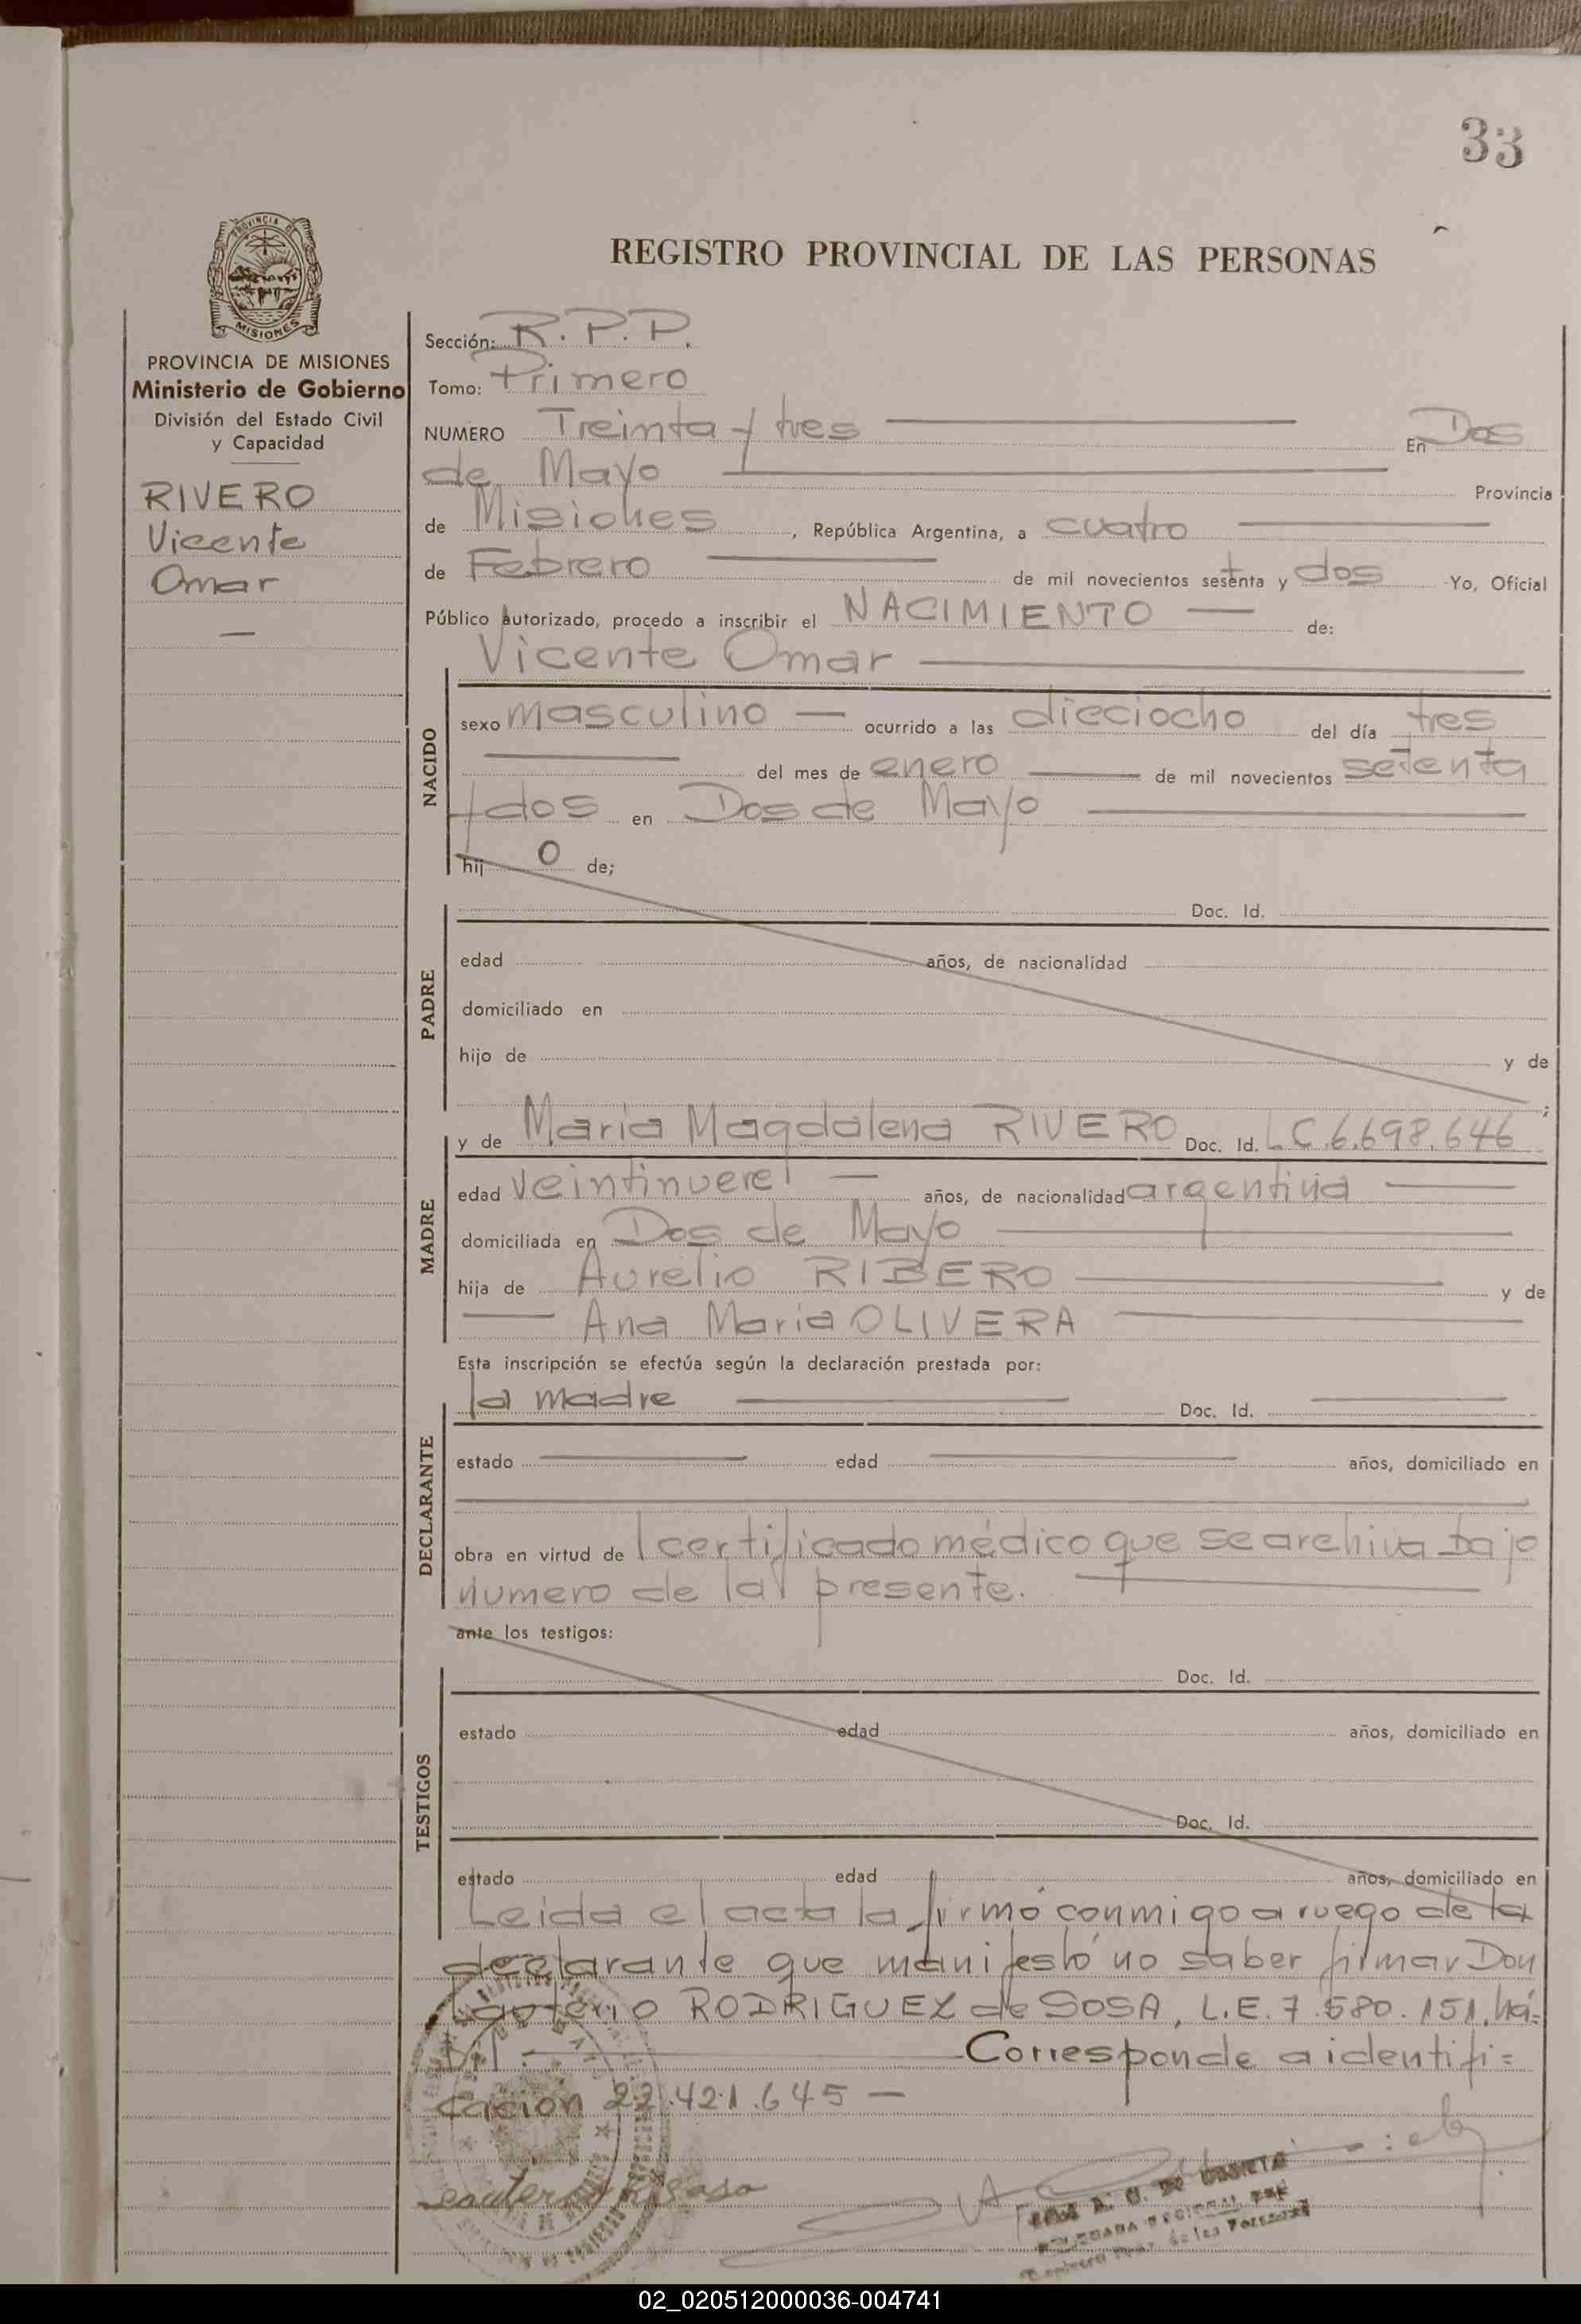 33
REGISTRO PROVINCIAL DE LAS PERSONAS
PROVINCIA DE MISIONES
PROVINCIA DE MISIONES
Ministerio de Gobierno
División del Estado Civil
y Capacidad
RIVERO
Vicente
Omar
Sección: R.P.P.
Tomo: Primero
NUMERO Treinta y tres En Dos
de Mayo Provincia
de Misiones, República Argentina, a cuatro
de Febrero de mil novecientos sesenta y dos Yo, Oficial
Público autorizado, procedo a inscribir el NACIMIENTO de:
Vicente Omar
NACIDO
sexo masculino ocurrido a las dieciocho del día tres
del mes de enero de mil novecientos setenta
y dos en Dos de Mayo
hij o de;
PADRE
Doc. Id.
edad años, de nacionalidad
domiciliado en
hijo de y de
;
MADRE
y de Maria Magdalena RIVERO Doc. Id. L.C.6.698.646
edad veintinueve años, de nacionalidad argentina
domiciliada en Dos de Mayo
hija de Aurelio RIBERO y de
Ana Maria OLIVERA
Esta inscripción se efectúa según la declaración prestada por:
DECLARANTE
la madre Doc. Id.
estado edad años, domiciliado en
obra en virtud de certificado médico que se archiva bajo
numero de la presente.
ante los testigos:
TESTIGOS
Doc. Id.
estado edad años, domiciliado en
Doc. Id.
estado edad años, domiciliado en
Leida el acta la firmó conmigo a ruego de la
declarante que manifestó no saber firmar Don
RODRIGUEZ de SOSA, L.E. 7.580.151, há=
bil. Corresponde a identifi=
cación 22.421.645 —
Sosa
02_020512000036-004741